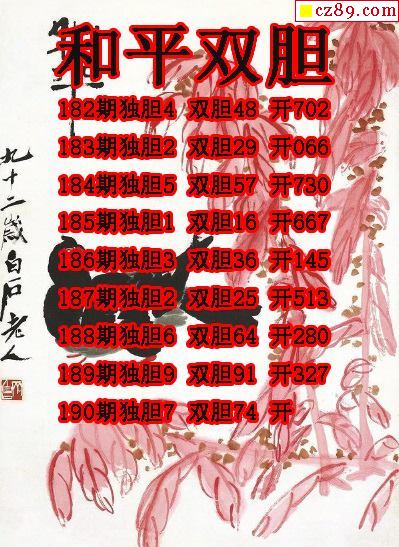 cz89.com
和平双胆
182期独胆4 双胆48 开702
183期独胆2 双胆29 开066
184期独胆5 双胆57 开730
185期独胆1 双胆16 开667
186期独胆3 双胆36 开145
187期独胆2 双胆25 开513
188期独胆6 双胆64 开280
189期独胆9 双胆91 开327
190期独胆7 双胆74 开
九十二歲白石老人